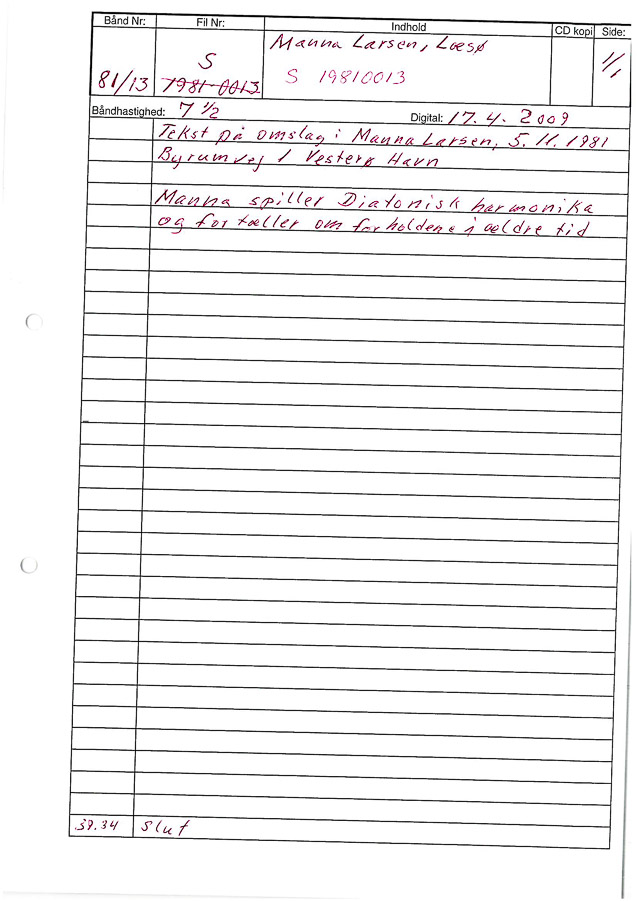 Bånd Nr: Fil Nr: Indhold CD kopi Side:
S Manna Larsen, Læsø 1/1
81/13 1981-0013 S 19810013
Båndhastighed: 7 1/2 Digital: 17.4. 2009
Tekst på omslag: Manna Larsen, 5.11.1981
Byrumvej 1 Vesterø Havn
Manna spiller Diatonisk harmonika
og fortæller om forholdene i ældre tid
39.34 Slut